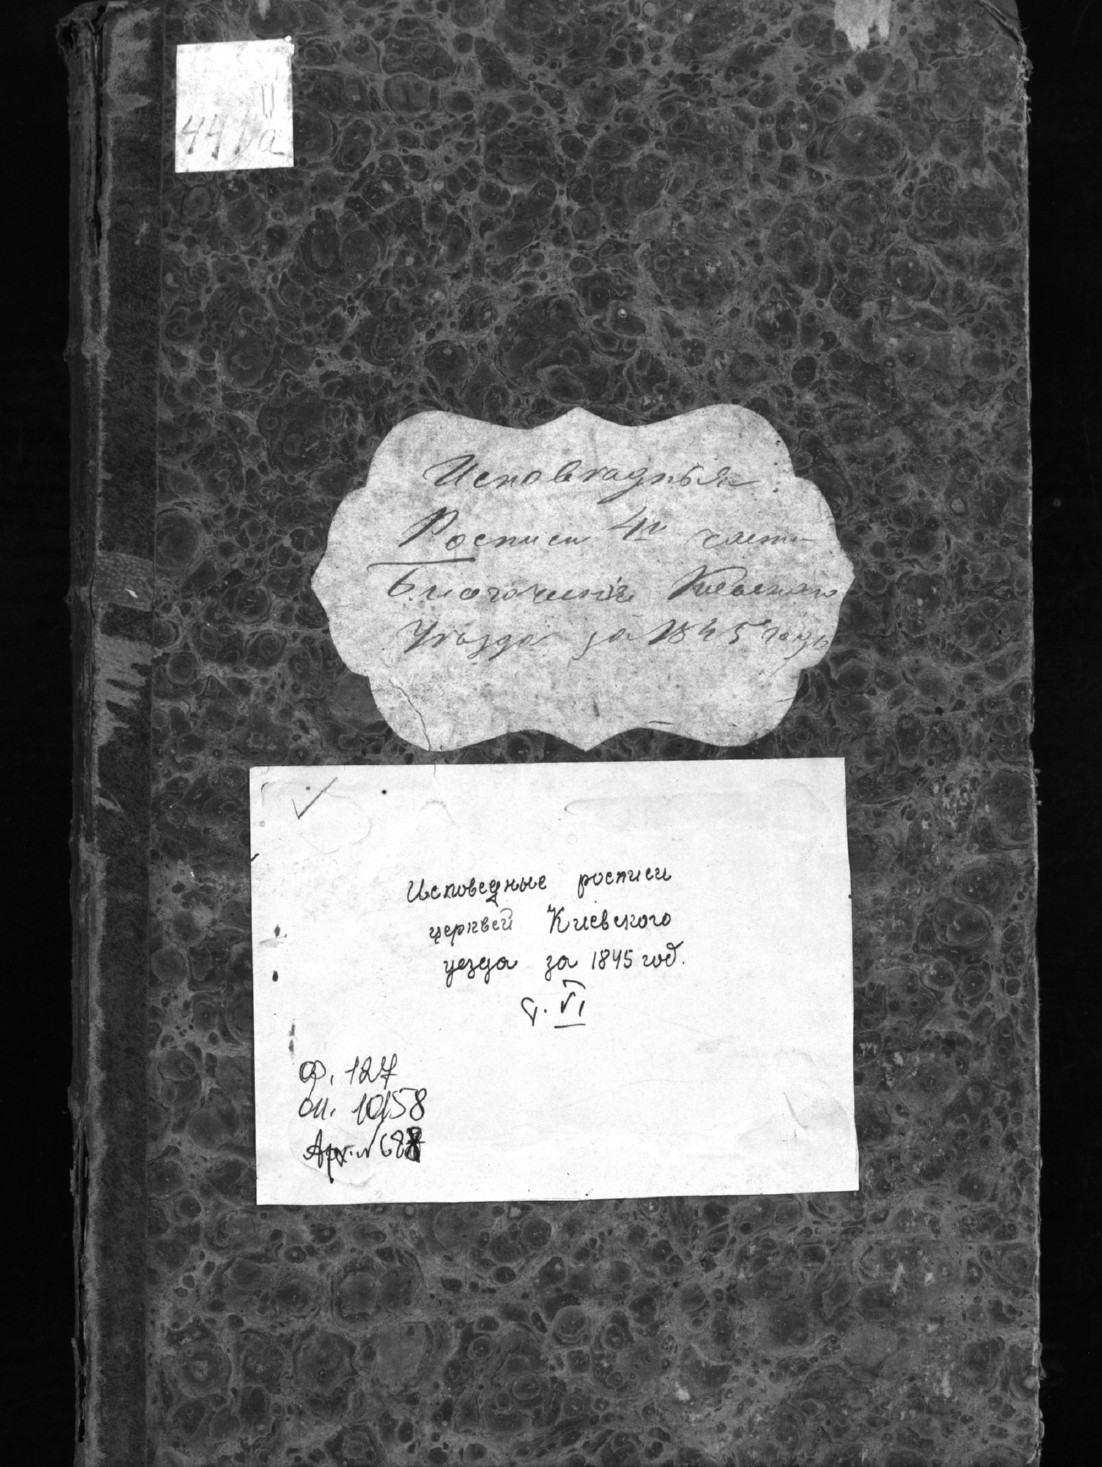 Исповѣдныя
Росписи 4й части
Благочинія Кіевскаго
Уѣзда за 1845 годъ
Исповедные росписи
церквей Киевского
уезда за 1845 год.
ч. VI
Ф. 127
оп. 1015
Арх. №